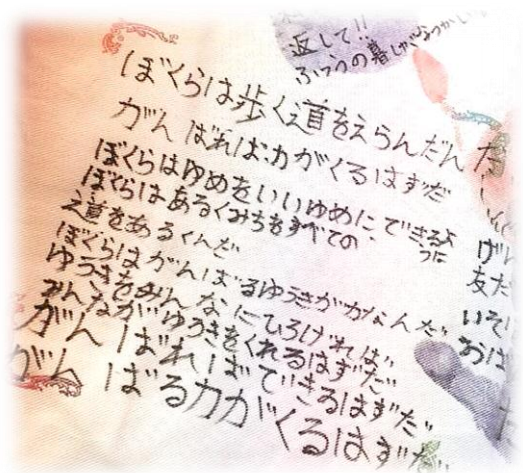 返して!!
ふつうの暮しがなつかしい
ぼくらは歩く道をえらんだんだ
がんばれば力がくるはずだ
ぼくらはゆめをいいゆめにできるように
ぼくらはあるくみちをすべての
道をあるくんだ
ぼくらはがんばるゆうきがかなんだ
ゆうきをみんなにひろげれば
みんながゆうきをくれるはずだ
がんばればできるはずだ
がんばる力がくるはずだ
友だ
いそ
おは